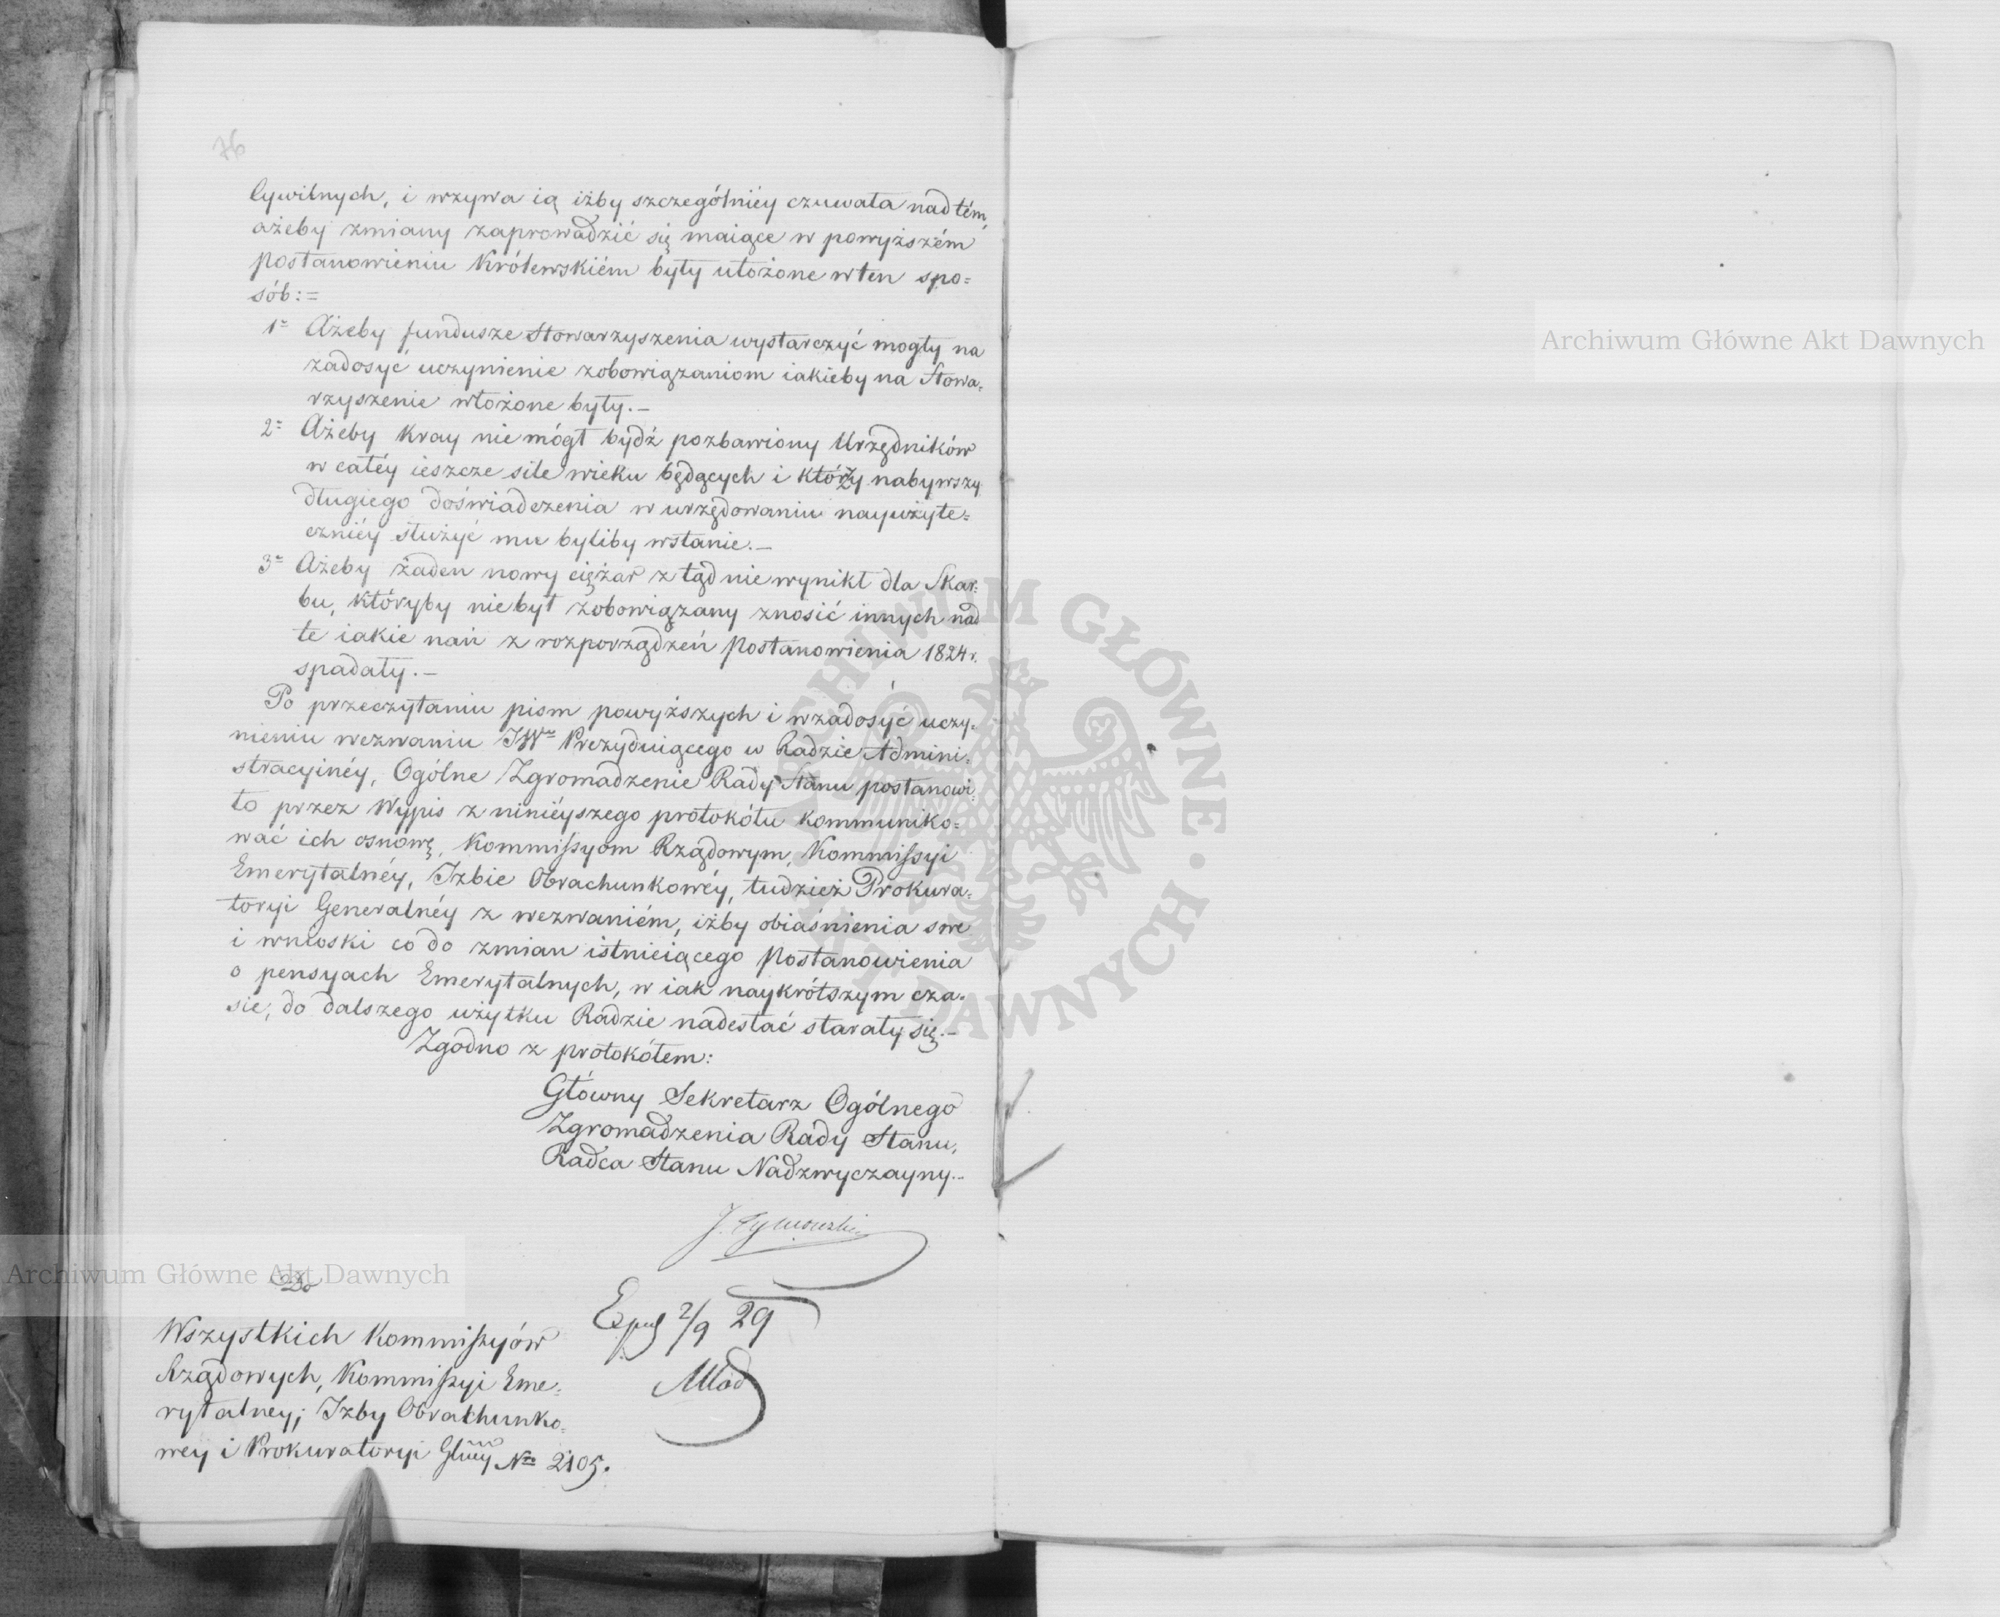 76
Cywilnych, i wzywa ią iżby szczególniéy czuwała nad tém,
ażeby zmiany zaprowadzić się maiące w powyższém
postanowieniu Królewskiém były ułożone w ten spo=
sób:=
1= Ażeby fundusze Stowarzyszenia wystarczyć mogły na
zadosyć uczynienie zobowiązaniom iakieby na Stowa=
rzyszenie włożone były.—
2= Ażeby Kray nie mógł bydź pozbawiony Urzędników
w całéy ieszcze sile wieku będących i którzy nabywszy
długiego doświadczenia w urzędowaniu nayużyte=
czniéy służyć mu byliby wstanie.—
3= Ażeby żaden nowy ciężar z tąd nie wynikł dla Skar=
bu, któryby niebył zobowiązany znosić innych nad
te iakie nań z rozporządzeń Postanowienia 1824 r.
spadały.—
Po przeczytaniu pism powyższych i wzadosyć uczy=
nieniu wezwaniu JW= Prezyduiącego w Radzie Admini=
stracyinéy, Ogólne Zgromadzenie Rady Stanu postanowi=
ło przez Wypis z ninieyszego protokółu kommuniko=
wać ich osnowę, Kommissyom Rządowym, Kommissyi
Emerytalnéy, Izbie Obrachunkowéy, tudzież Prokura=
toryi Generalnéy z wezwaniém, iżby obiaśnienia swe
i wnioski co do zmian istnieiącego Postanowienia
o pensyach Emerytalnych, w iak naykrótszym cza=
sie, do dalszego użytku Radzie nadesłać starały się.—
Zgodno z protokółem:
Główny Sekretarz Ogólnego
Zgromadzenia Rady Stanu,
Radca Stanu Nadzwyczayny.—
J. Tymowski
Do
Wszystkich Kommissyów
Rządowych, Kommissyi Eme=
rytalney; Izby Obrachunko=
wey i Prokuratoryi Glney No 2105.
2/9 29
Archiwum Główne Akt Dawnych
Archiwum Główne Akt Dawnych
ARCHIWUM GŁÓWNE • AKT DAWNYCH •